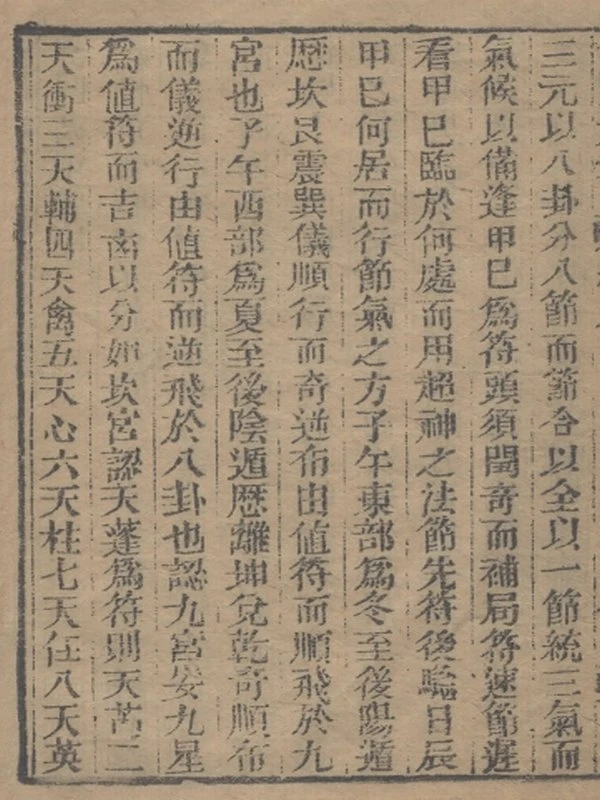 三元以八卦分八節而節合以全以一節統三氣而
氣候以備逢甲巳爲符頭須閏奇而補局符速節遲
看甲巳臨於何處而用超神之法節先符後驗日辰
甲巳何居而行節氣之方子午東部爲冬至後陽遁
歷坎艮震巽儀順行而奇逆布由値符而順飛於九
宮也子午酉部爲夏至後陰遁歷離坤兌乾奇順布
而儀逆行由値符而逆飛於八卦也認九宮安九星
爲値符而吉㐫以分如坎宮認天蓬爲符則天芮二
天衝三天輔四天禽五天心六天柱七天任八天英